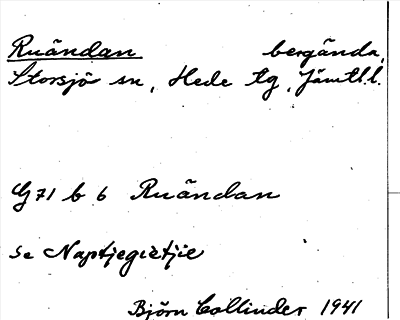 Ruändan bergända,
Storsjö sn, Hede tg, Jämtl.l.
G 71 b 6 Ruändan
se Naptjegietjie
Björn Collinder 1941